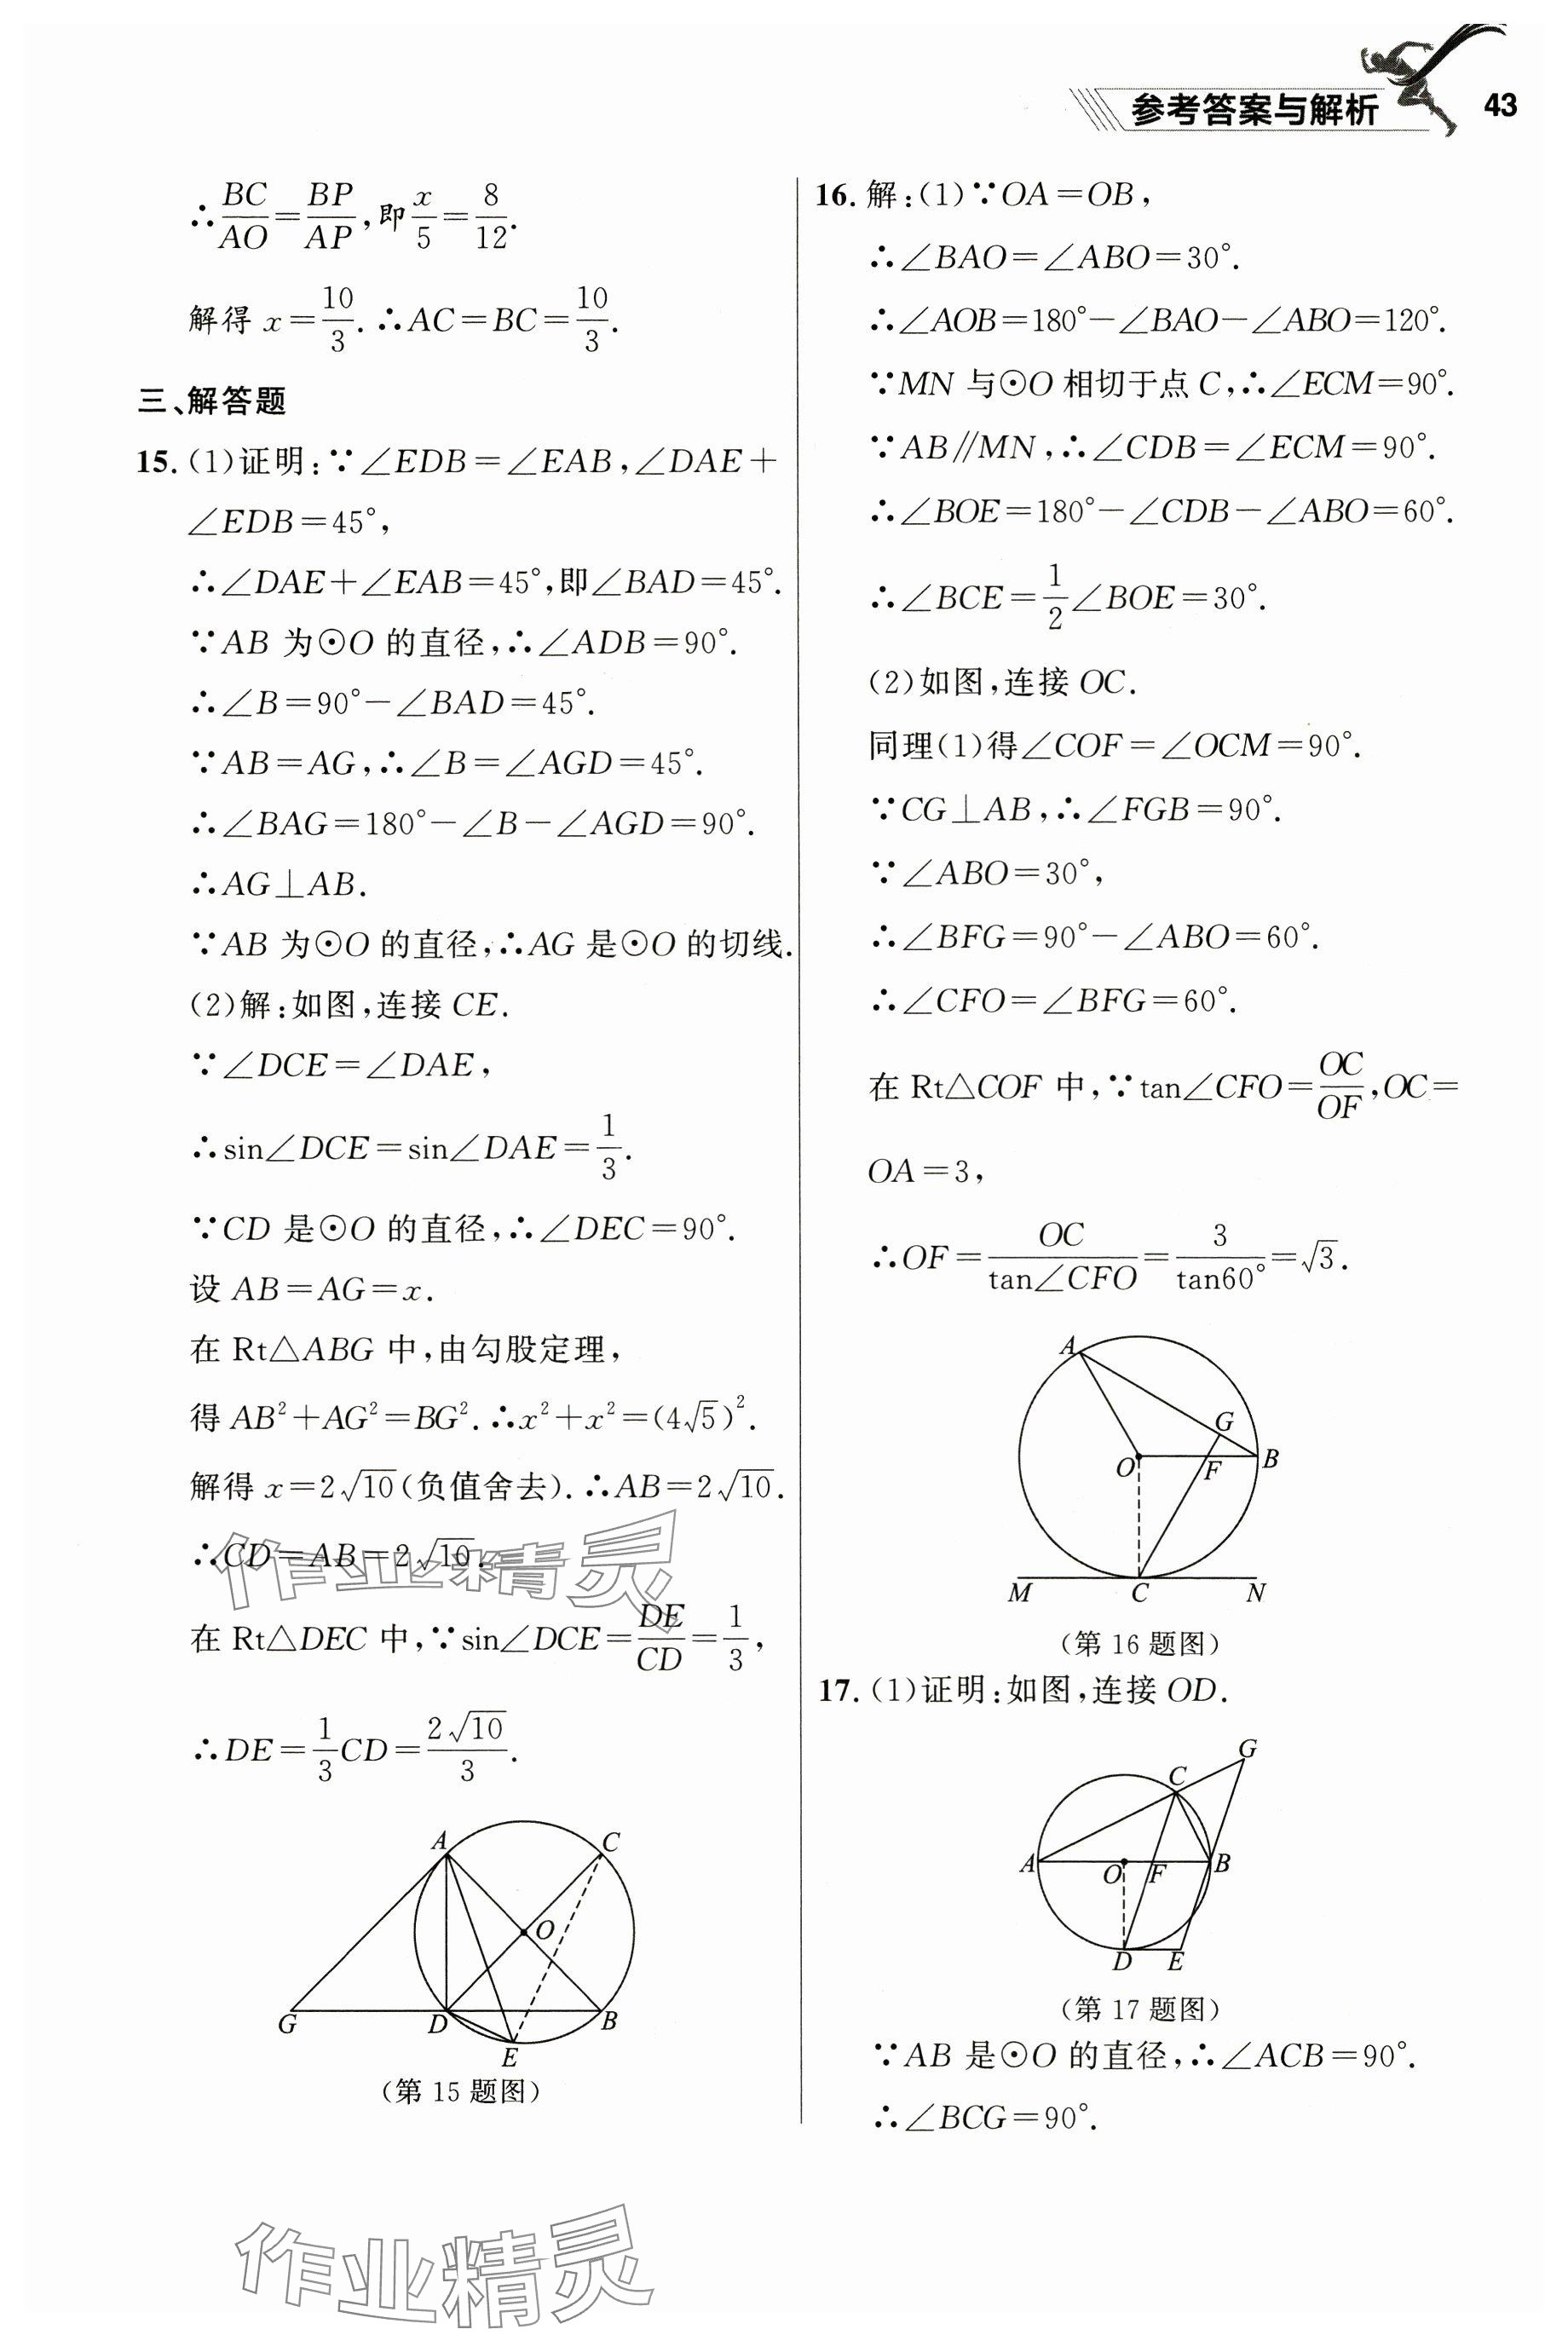 参考答案与解析 43
∴BC/AO=BP/AP,即x/5=8/12.
解得 x=10/3.∴AC=BC=10/3.
三、解答题
15.(1)证明:∵∠EDB=∠EAB,∠DAE+
∠EDB=45°,
∴∠DAE+∠EAB=45°,即∠BAD=45°.
∵AB 为⊙O 的直径,∴∠ADB=90°.
∴∠B=90°-∠BAD=45°.
∵AB=AG,∴∠B=∠AGD=45°.
∴∠BAG=180°-∠B-∠AGD=90°.
∴AG⊥AB.
∵AB 为⊙O 的直径,∴AG 是⊙O 的切线.
(2)解:如图,连接 CE.
∵∠DCE=∠DAE,
∴sin∠DCE=sin∠DAE=1/3.
∵CD 是⊙O 的直径,∴∠DEC=90°.
设 AB=AG=x.
在 Rt△ABG 中,由勾股定理,
得 AB²+AG²=BG².∴x²+x²=(4√5)².
解得 x=2√10(负值舍去).∴AB=2√10.
∴CD=AB=2√10.
在 Rt△DEC 中,∵sin∠DCE=DE/CD=1/3,
∴DE=1/3CD=2√10/3.
A C
O
G D B
E
(第 15 题图)
16.解:(1)∵OA=OB,
∴∠BAO=∠ABO=30°.
∴∠AOB=180°-∠BAO-∠ABO=120°.
∵MN 与⊙O 相切于点 C,∴∠ECM=90°.
∵AB∥MN,∴∠CDB=∠ECM=90°.
∴∠BOE=180°-∠CDB-∠ABO=60°.
∴∠BCE=1/2∠BOE=30°.
(2)如图,连接 OC.
同理(1)得∠COF=∠OCM=90°.
∵CG⊥AB,∴∠FGB=90°.
∵∠ABO=30°,
∴∠BFG=90°-∠ABO=60°.
∴∠CFO=∠BFG=60°.
在 Rt△COF 中,∵tan∠CFO=OC/OF,OC=
OA=3,
∴OF=OC/tan∠CFO=3/tan60°=√3.
A
G
O F B
M C N
(第 16 题图)
17.(1)证明:如图,连接 OD.
G
C
A O F B
D E
(第 17 题图)
∵AB 是⊙O 的直径,∴∠ACB=90°.
∴∠BCG=90°.
作业精灵
作业精灵